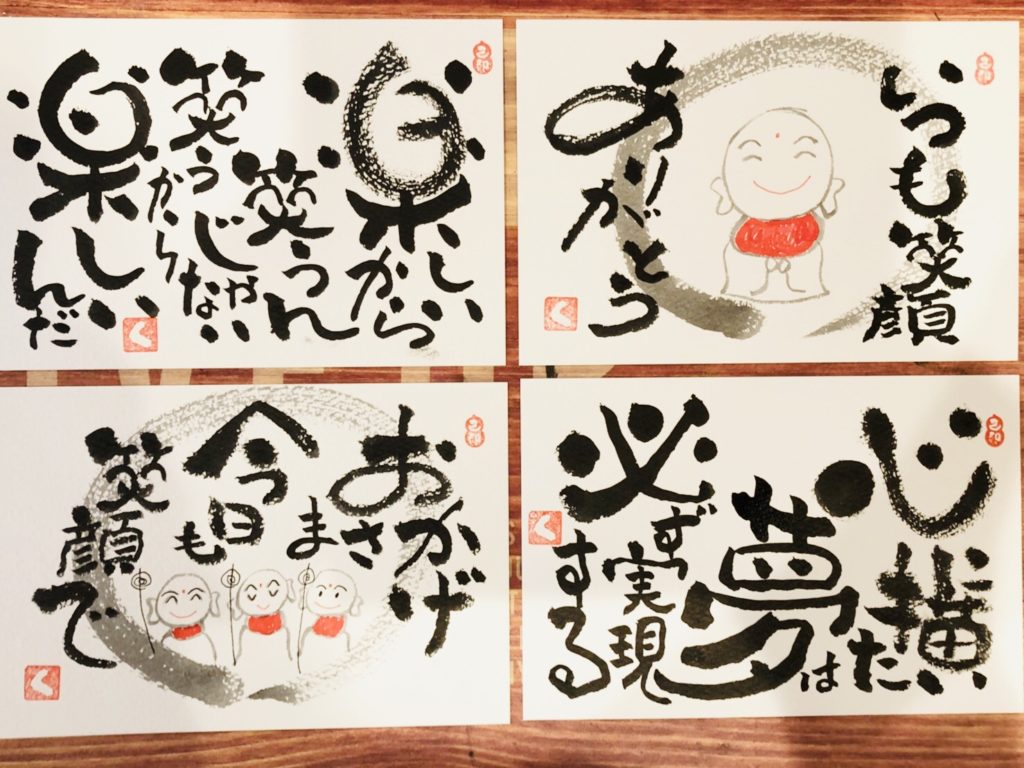 楽しいから
笑うん
じゃない
笑うから
楽しいんだ
く
いつも笑顔
ありがとう
く
おかげ
さま
今日も
笑顔で
く
心
描いた
夢は
必ず
実現
する
く